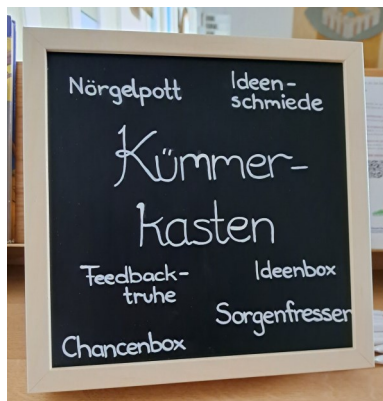 Nörgelpott
Ideen-
schmiede
Kümmer-
kasten
Feedback-
truhe
Ideenbox
Sorgenfresser
Chancenbox